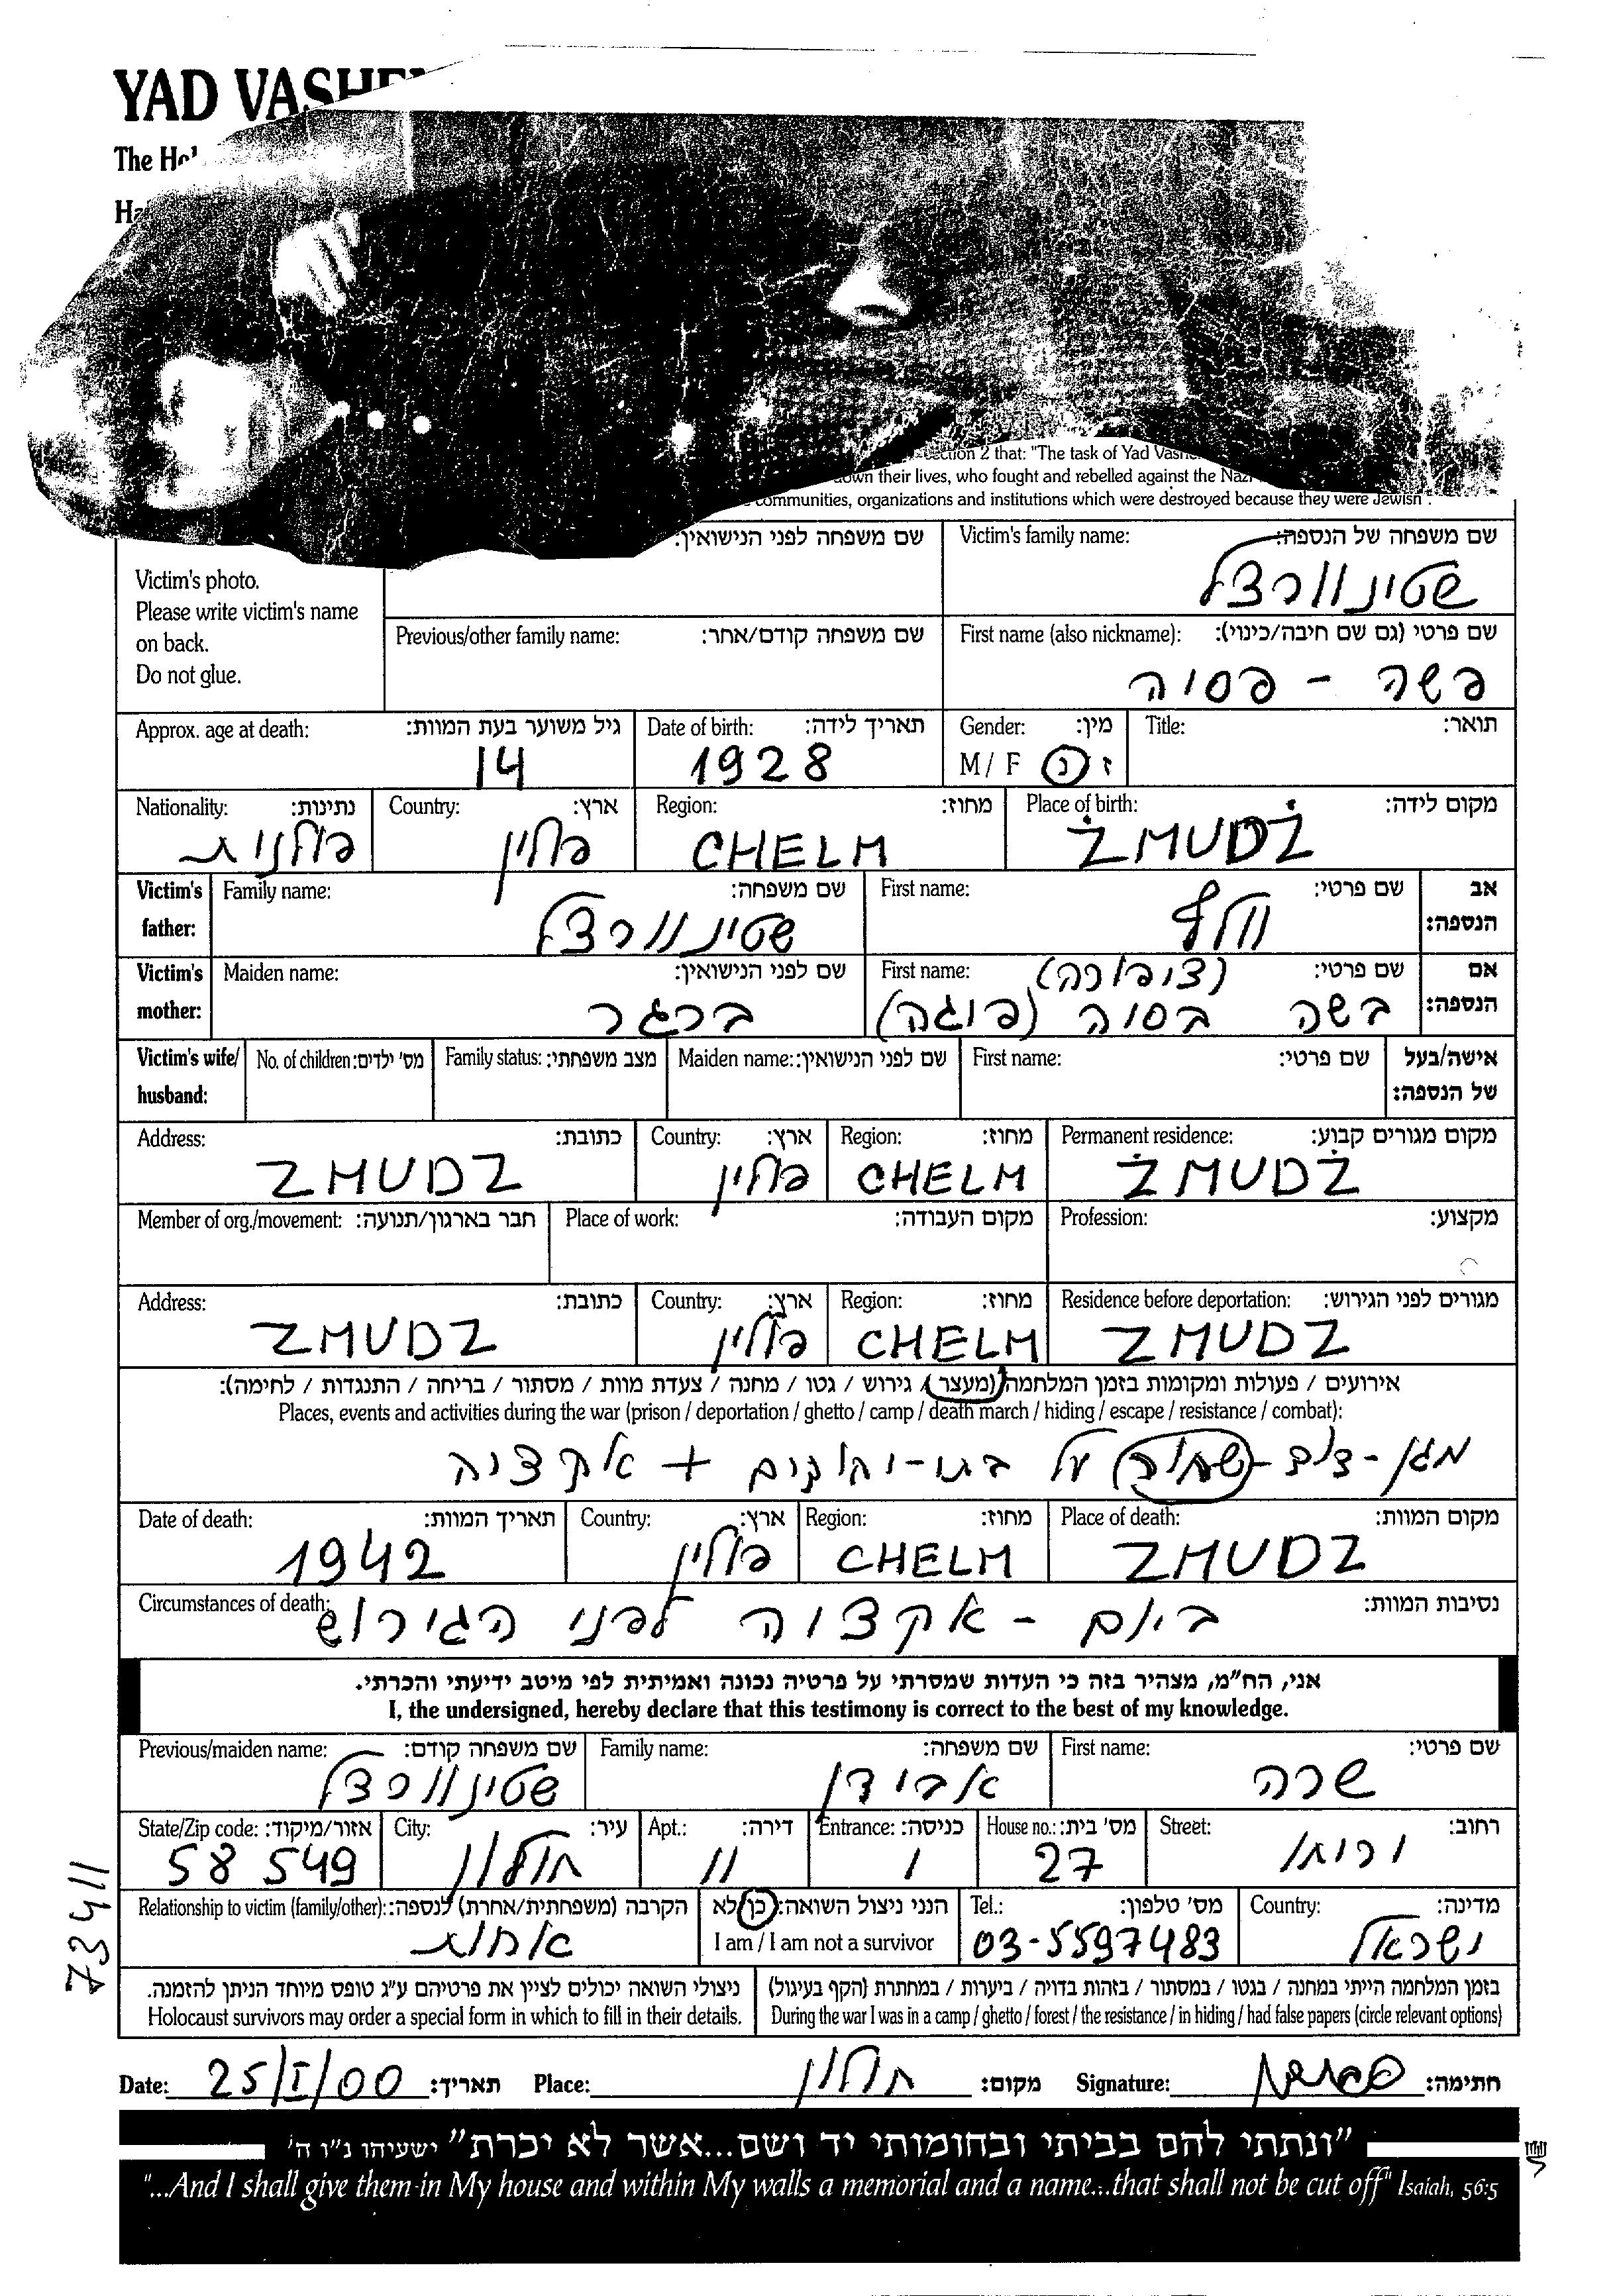 YAD VASHEM
The Hol
Ha
ection 2 that: "The task of Yad Vashe
down their lives, who fought and rebelled against the Nazi
communities, organizations and institutions which were destroyed because they were Jewish".
Victim's photo.
Please write victim's name
on back.
Do not glue.
שם משפחה לפני הנישואין:
Victim's family name: שם משפחה של הנספה:
שטיינוורצל
Previous/other family name: שם משפחה קודם/אחר:
First name (also nickname): שם פרטי (גם שם חיבה/כינוי):
פשה - פסיה
Approx. age at death: גיל משוער בעת המוות:
14
Date of birth: תאריך לידה:
1928
Gender: מין:
M / F ז נ
Title: תואר:
Nationality: נתינות:
פולנית
Country: ארץ:
פולין
Region: מחוז:
CHELM
Place of birth: מקום לידה:
ŻMUDŻ
Victim's father: Family name: שם משפחה:
שטיינוורצל
First name: שם פרטי:
וולף
אב הנספה:
Victim's mother: Maiden name: שם לפני הנישואין:
ברגר
First name: שם פרטי:
(ציפורה)
בשה בסיה (פיגה)
אם הנספה:
Victim's wife/ husband: No. of children: מס' ילדים: Family status: מצב משפחתי: Maiden name: שם לפני הנישואין: First name: שם פרטי: אישה/בעל של הנספה:
Address: כתובת:
ZMUDZ
Country: ארץ:
פולין
Region: מחוז:
CHELM
Permanent residence: מקום מגורים קבוע:
ŻMUDŻ
Member of org./movement: חבר בארגון/תנועה: Place of work: מקום העבודה: Profession: מקצוע:
Address: כתובת:
ZMUDZ
Country: ארץ:
פולין
Region: מחוז:
CHELM
Residence before deportation: מגורים לפני הגירוש:
ZMUDZ
אירועים / פעולות ומקומות בזמן המלחמה (מעצר / גירוש / גטו / מחנה / צעדת מוות / מסתור / בריחה / התנגדות / לחימה):
Places, events and activities during the war (prison / deportation / ghetto / camp / death march / hiding / escape / resistance / combat):
מגן-דוד-(שחור) על + אקציה
Date of death: תאריך המוות:
1942
Country: ארץ:
פולין
Region: מחוז:
CHELM
Place of death: מקום המוות:
ZMUDZ
Circumstances of death: נסיבות המוות:
ביום - אקציה לפני הגירוש
אני, הח"מ, מצהיר בזה כי העדות שמסרתי על פרטיה נכונה ואמיתית לפי מיטב ידיעתי והכרתי.
I, the undersigned, hereby declare that this testimony is correct to the best of my knowledge.
Previous/maiden name: שם משפחה קודם:
שטיינוורצל
Family name: שם משפחה:
אבידן
First name: שם פרטי:
שרה
State/Zip code: אזור/מיקוד:
58 549
City: עיר:
חולון
Apt.: דירה:
11
Entrance: כניסה:
1
House no.: מס' בית:
27
Street: רחוב:
Relationship to victim (family/other): הקרבה (משפחתית/אחרת) לנספה:
אחות
הנני ניצול השואה: כן/לא
I am / I am not a survivor
Tel.: מס' טלפון:
03-5597483
Country: מדינה:
ישראל
73411
ניצולי השואה יכולים לציין את פרטיהם ע"ג טופס מיוחד הניתן להזמנה.
Holocaust survivors may order a special form in which to fill in their details.
בזמן המלחמה הייתי במחנה / בגטו / במסתור / בזהות בדויה / ביערות / במחתרת (הקף בעיגול)
During the war I was in a camp / ghetto / forest / the resistance / in hiding / had false papers (circle relevant options)
Date: 25/I/00 תאריך: Place: חולון מקום: Signature: חתימה:
"ונתתי להם בביתי ובחומותי יד ושם...אשר לא יכרת" ישעיהו נ"ו ה'
"...And I shall give them in My house and within My walls a memorial and a name...that shall not be cut off" Isaiah, 56:5